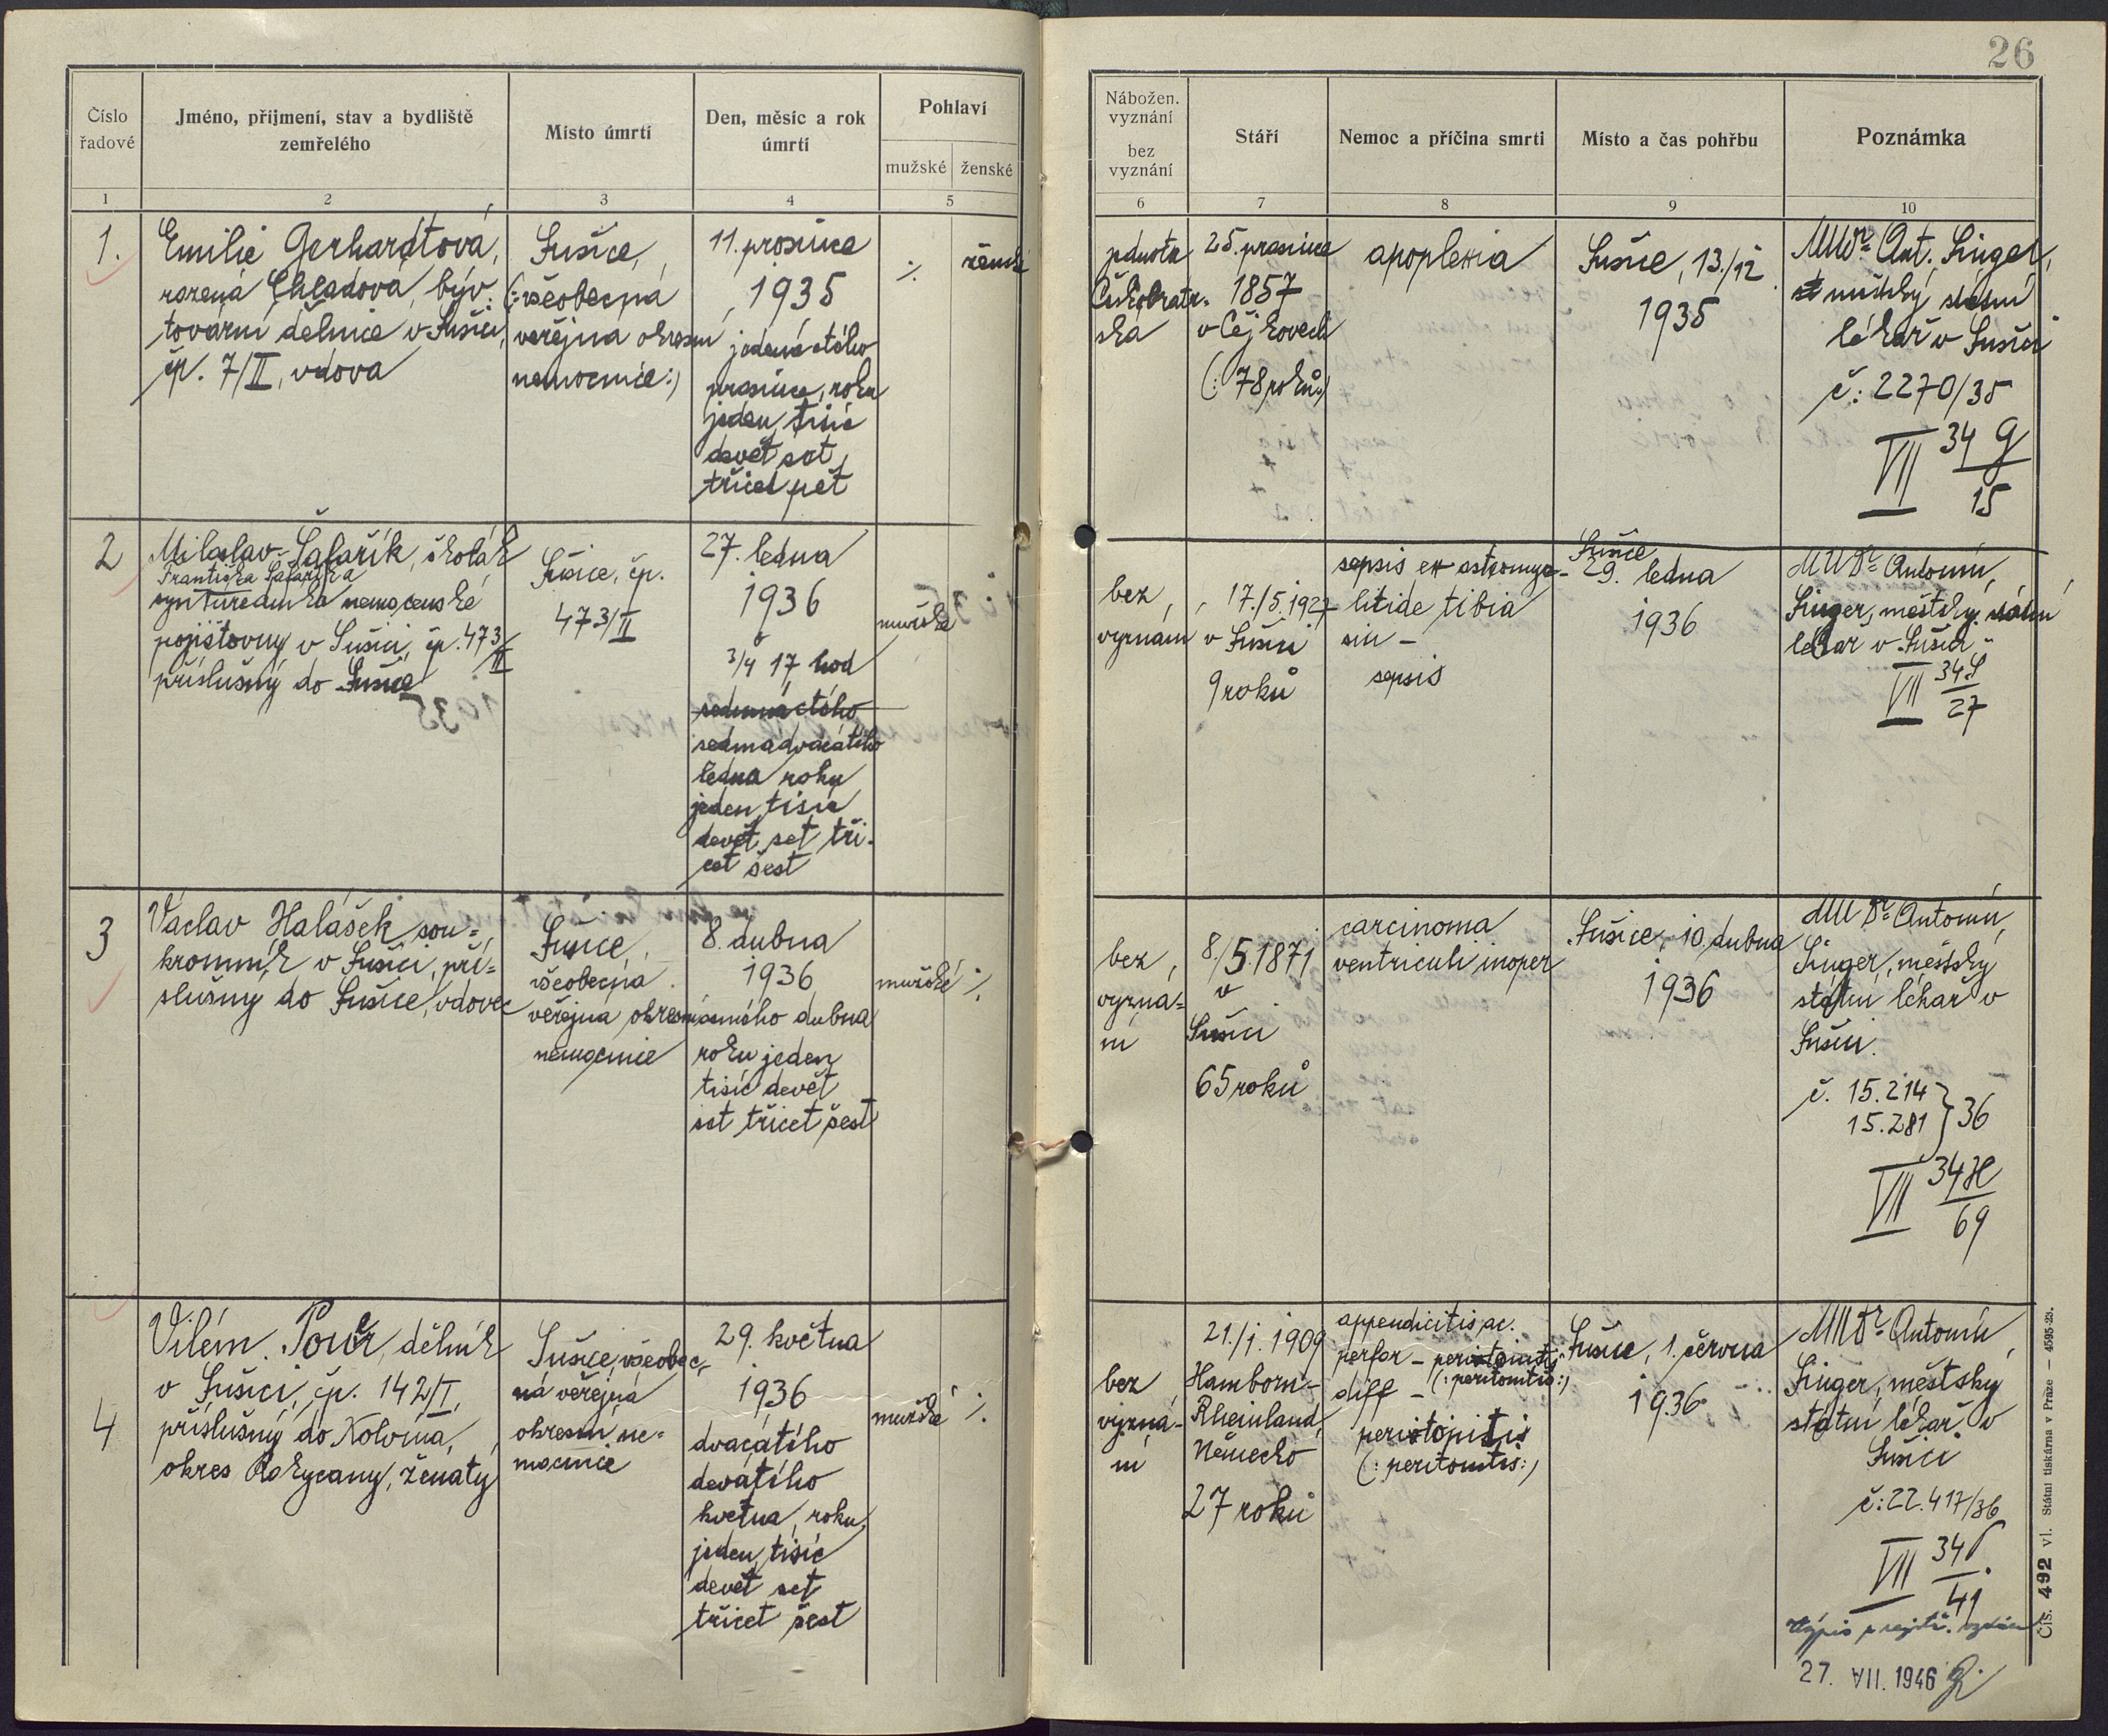 26
Číslo řadové
Jméno, příjmení, stav a bydliště zemřelého
Místo úmrtí
Den, měsíc a rok úmrtí
Pohlaví
mužské
ženské
1
2
3
4
5
Nábožen. vyznání
bez vyznání
Stáří
Nemoc a příčina smrti
Místo a čas pohřbu
Poznámka
6
7
8
9
10
1.
Emilie Gerhardtová,
rozená Chladová, býv.
tovární dělnice v Sušici,
čp. 7/II, vdova
Sušice,
(:všeobecná
veřejná okresní
nemocnice:)
11. prosince
1935
jedenáctého
prosince, roku
jeden tisíc
devět set
třicet pět
·/.
ženské
jednota
Českobratr-
ská
25. prosince
1857
v Čejkovech
(:78 roků:)
apoplexia
Sušice, 13./12.
1935
MUDr Ant. Singer,
městský státní
lékař v Sušici
č: 2270/35
VII 34 G
15
2
Miloslav Šafařík, školák
Františka Šafaříka
syn úředníka nemocenské
pojišťovny v Sušici, čp. 473/II
příslušný do Sušice
Sušice, čp.
473/II
27. ledna
1936
o
3/4 17 hod
sedmnáctého
sedmadvacátého
ledna roku
jeden tisíc
devět set tři-
cet šest
mužské
bez
vyznání
17./5. 1927
v Sušici
9 roků
sepsis ex osteomye-
litide tibia
sin -
sepsis
Sušice
29. ledna
1936
MUDr Antonín
Singer, městský státní
lékař v Sušici
VII 34 S
27
3
Václav Halášek, sou-
kromník v Sušici, pří-
slušný do Sušice, vdovec
Sušice,
všeobecná
veřejná okresní
nemocnice
8. dubna
1936
osmého dubna
roku jeden
tisíc devět
set třicet šest
mužské
·/.
bez
vyzná-
ní
8./5. 1871
v
Sušici
65 roků
carcinoma
ventriculi inoper
Sušice, 10. dubna
1936
MUDr Antonín
Singer, městský
státní lékař v
Sušici.
č. 15.214
15.281 } 36
VII 34 H
69
4
Vilém Pouer, dělník
v Sušici, čp. 142/I,
příslušný do Kolvína,
okres Rokycany, ženatý
Sušice, všeobec-
ná veřejná
okresní ne-
mocnice
29. května
1936
dvacátého
devátého
května, roku
jeden tisíc
devět set
třicet šest
mužské
·/.
bez
vyzná-
ní
21./1. 1909
Hamborn-
Rheinland,
Německo
27 roků
appendicitis ac.
perfor - peristonitis
diff - (:peritonitis:)
peristonitis
(:peritonitis:)
Sušice, 1. června
1936
MUDr Antonín
Singer, městský
státní lékař v
Sušici
č: 22.417/36
VII 34
41
27. VII. 1946
Čís. 492 vl. Státní tiskárna v Praze — 4595-23.